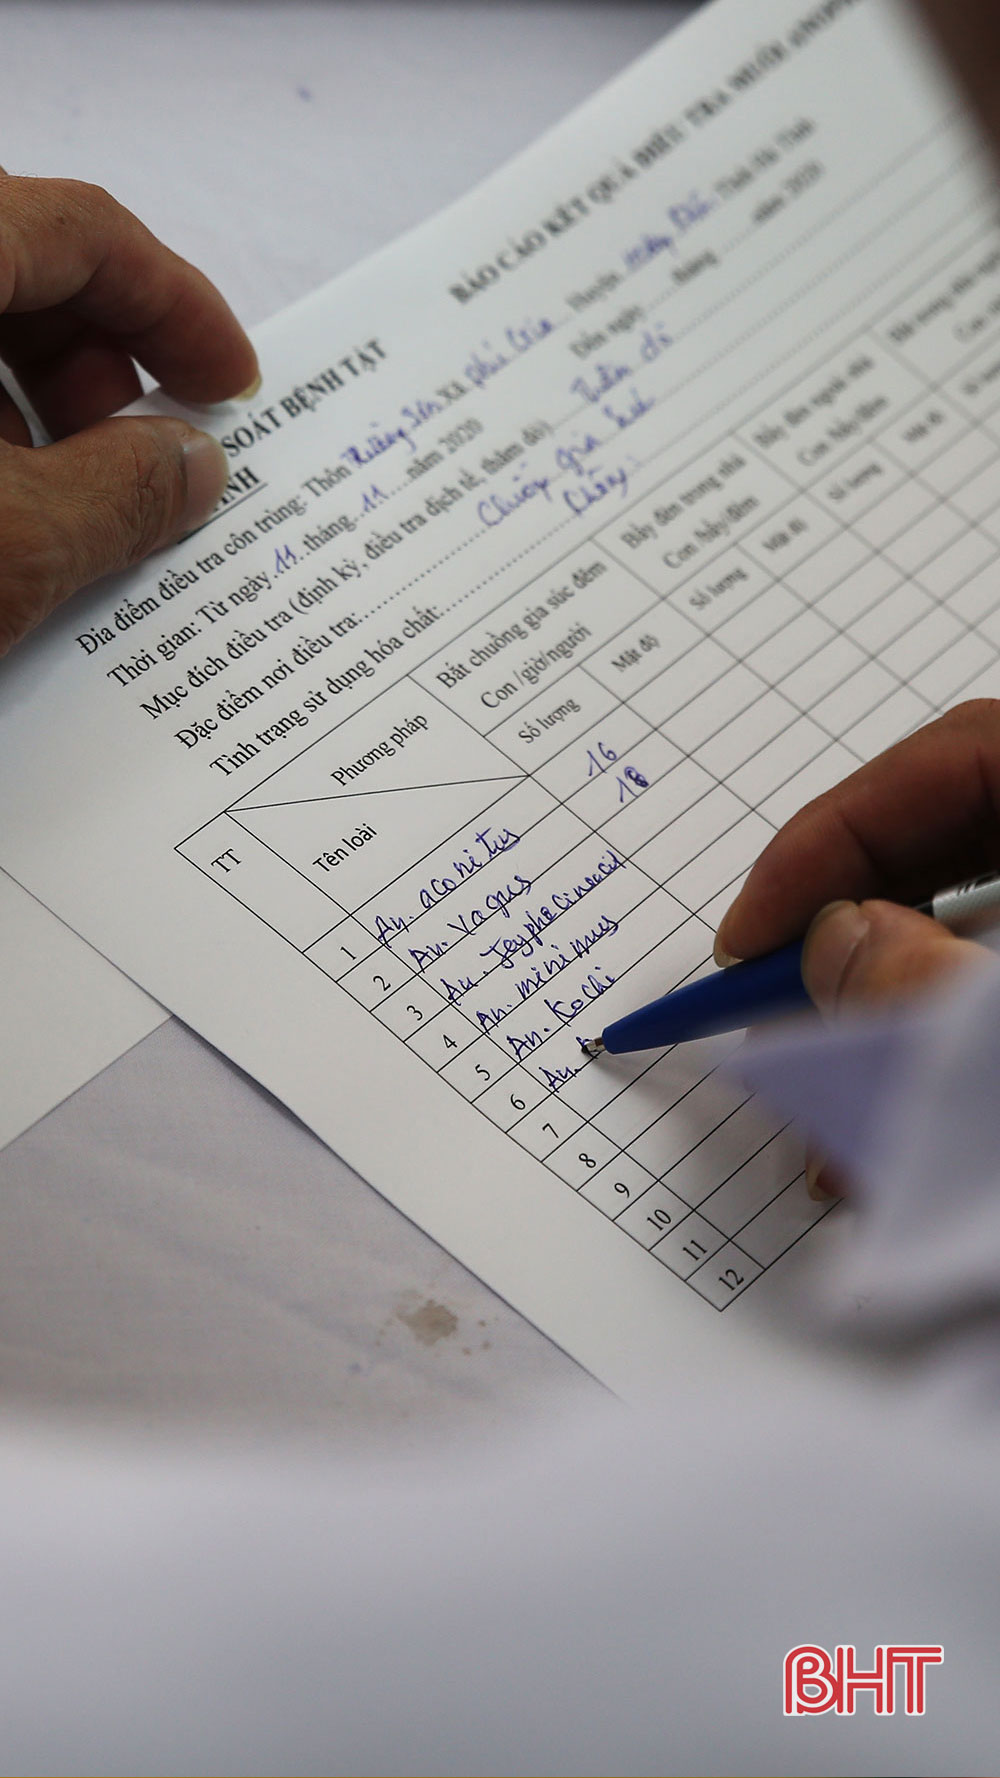 BÁO CÁO KẾT QUẢ ĐIỀU TRA MUỖI
SOÁT BỆNH TẬT
Địa điểm điều tra côn trùng: Thôn Xã Phú Gia Huyện Tỉnh Hà Tĩnh
Thời gian: Từ ngày 11 tháng 11 năm 2020 Đến ngày tháng năm 2020
Mục đích điều tra (định kỳ, điều tra dịch tễ, thăm dò)
Đặc điểm nơi điều tra: Chuồng gia súc
Tình trạng sử dụng hóa chất:
TT
Phương pháp
Tên loài
Bắt chuồng gia súc đêm
Con /giờ/người
Số lượng
Mật độ
Bẫy đèn trong nhà
Con /bẫy/đêm
Số lượng
Mật độ
Bẫy đèn ngoài nhà
Con /bẫy/đêm
Số lượng
Mật độ
1 An. aconitus 16
2 An. vagus 18
3 An. Jeyphociencid
4 An. minimus
5 An. Kochi
6 An.
7
8
9
10
11
12
BHT